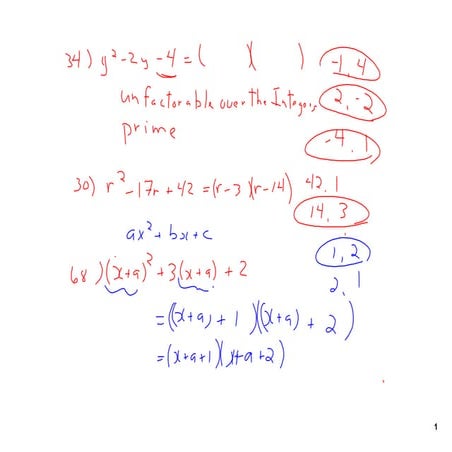 34) y²-2y-4 = (  )(  ) -1, 4
unfactorable over the Integers, 2, -2
prime
-4, 1
30) r²-17r+42 = (r-3)(r-14) 42, 1
14, 3
ax²+bx+c
1, 2
68) (x+a)²+3(x+a)+2
2, 1
= ((x+a)+1)((x+a)+2)
= (x+a+1)(x+a+2)
1